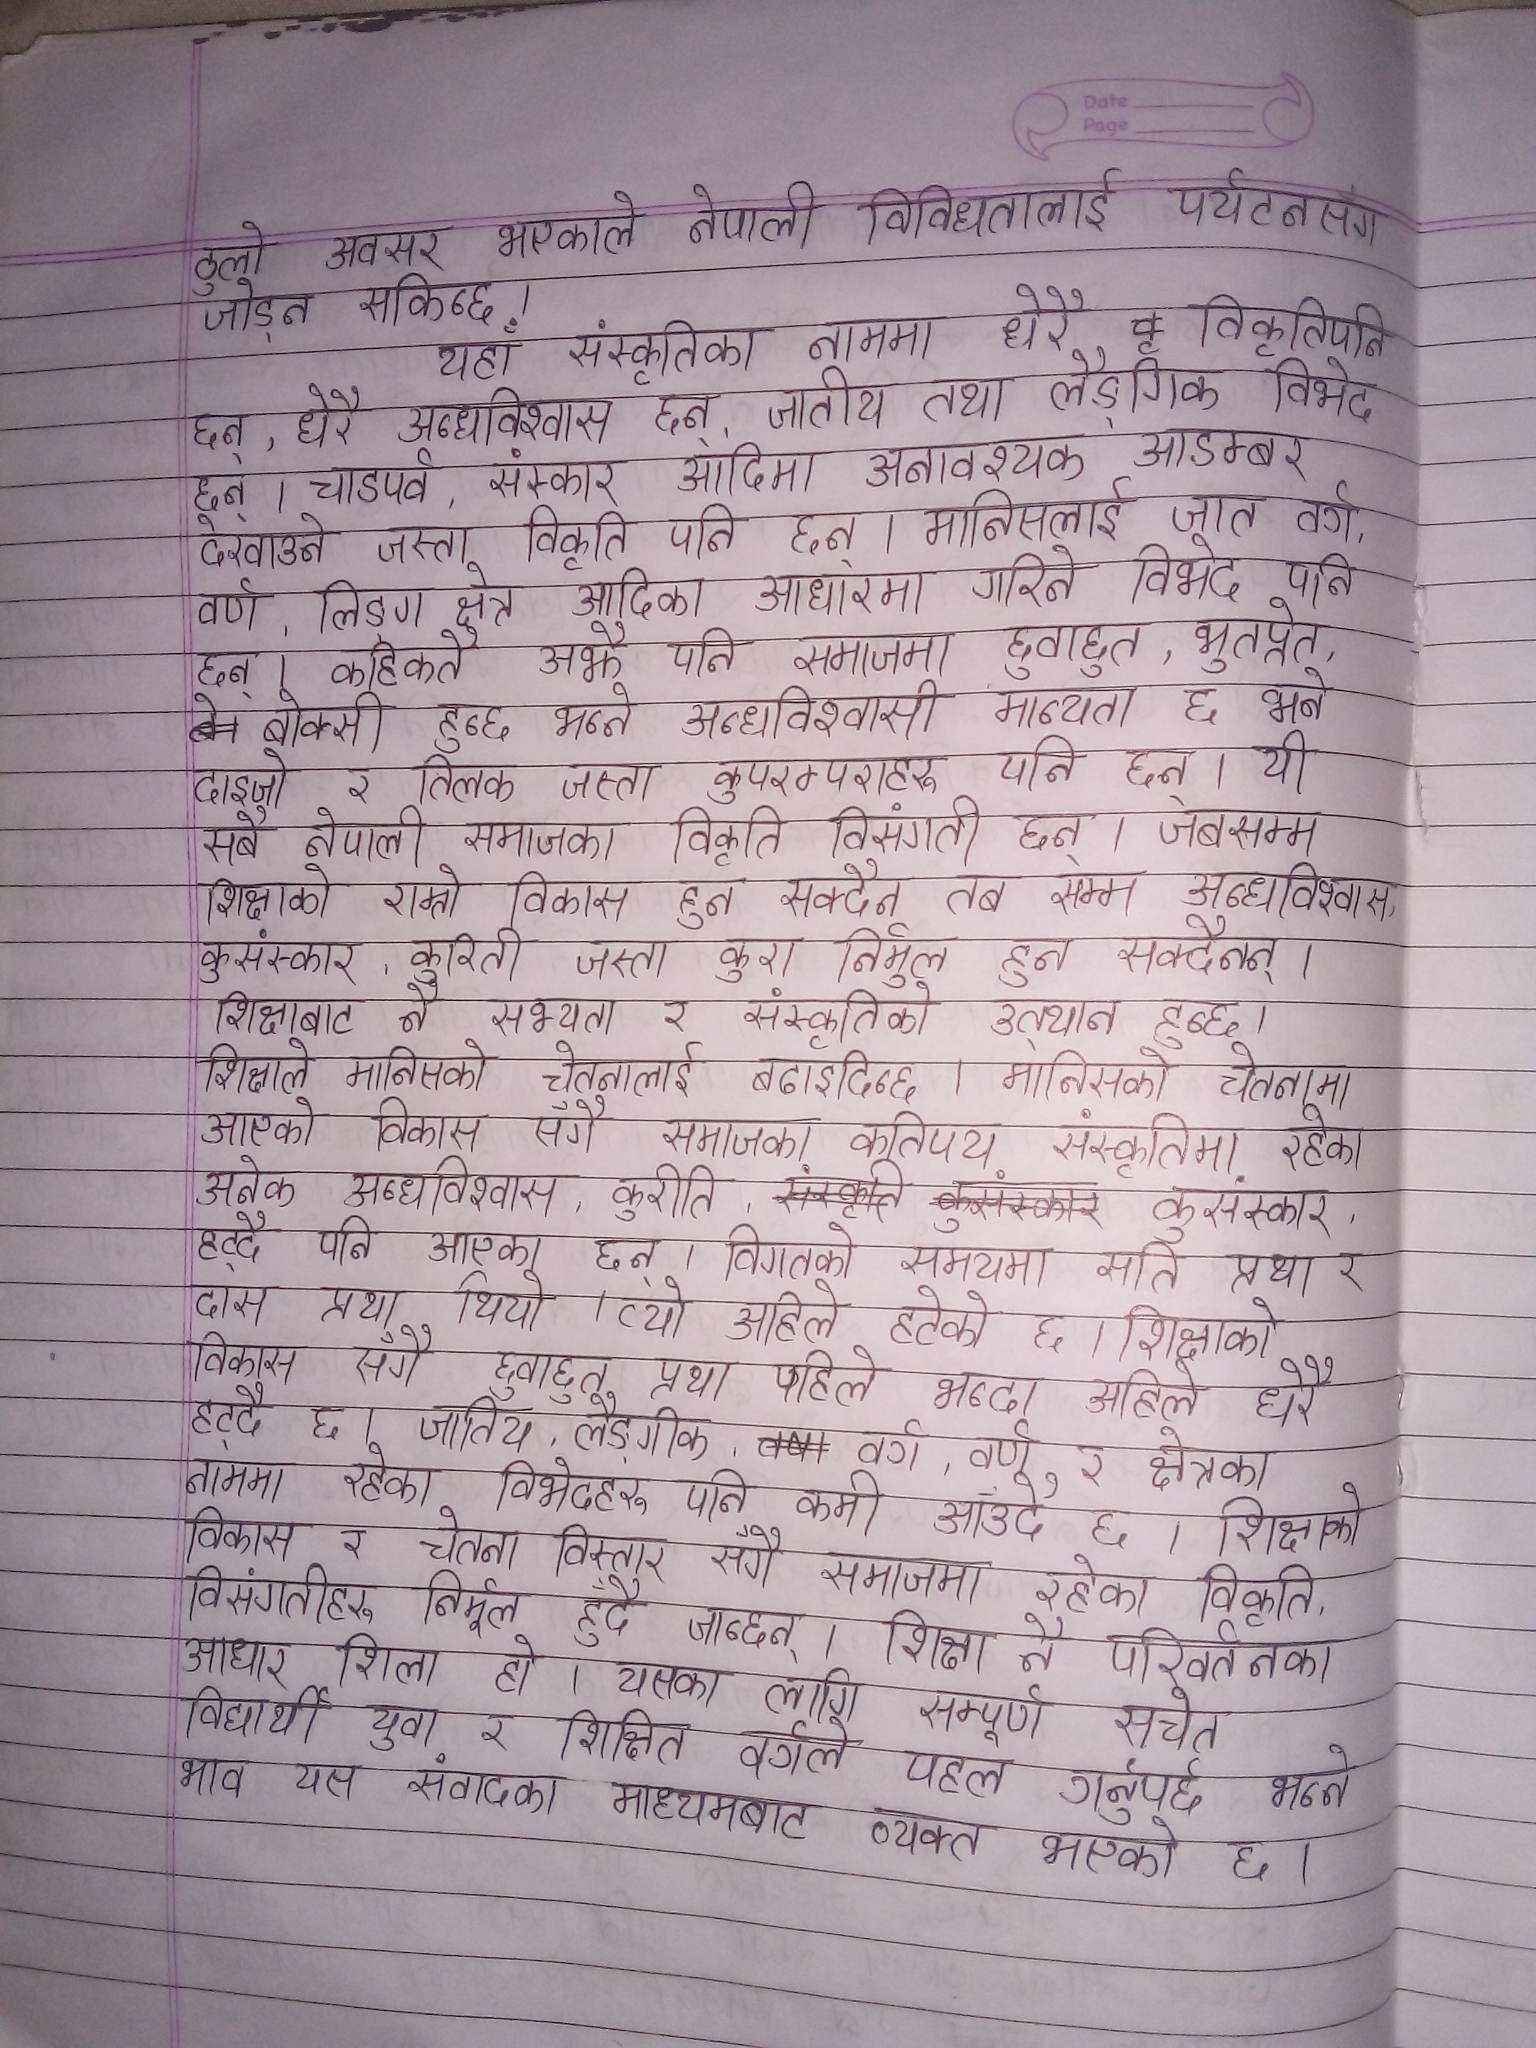 Date
Page
ठुलो अवसर भएकाले नेपाली विविधतालाई पर्यटनसंग
जोड्न सकिन्छ।
यहाँ संस्कृतिका नाममा धेरै विकृतिपनि
छन्, धेरै अन्धविश्वास छन्, जातीय तथा लैङ्गिक विभेद
छन्। चाडपर्व, संस्कार आदिमा अनावश्यक आडम्बर
देखाउने जस्ता विकृति पनि छन्। मानिसलाई जात वर्ग,
वर्ण, लिङ्ग क्षेत्र आदिका आधारमा गरिने विभेद पनि
छन्। कहिकतै अझै पनि समाजमा छुवाछुत, भुतप्रेत,
बोक्सी हुन्छ भन्ने अन्धविश्वासी मान्यता छ भने
दाइजो र तिलक जस्ता कुपरम्पराहरु पनि छन्। यी
सबै नेपाली समाजका विकृति विसंगती छन्। जबसम्म
शिक्षाको राम्रो विकास हुन सक्दैन तब सम्म अन्धविश्वास,
कुसंस्कार, कुरिती जस्ता कुरा निर्मुल हुन सक्दैनन्।
शिक्षाबाट नै सभ्यता र संस्कृतिको उत्थान हुन्छ।
शिक्षाले मानिसको चेतनालाई बढाइदिन्छ। मानिसको चेतनामा
आएको विकास सँगै समाजका कतिपय संस्कृतिमा रहेका
अनेक अन्धविश्वास, कुरीति, संस्कृति कुसंस्कार कुसंस्कार,
हट्दै पनि आएका छन्। विगतको समयमा सति प्रथा र
दास प्रथा थियो। त्यो अहिले हटेको छ। शिक्षाको
विकास सँगै छुवाछुत प्रथा पहिले भन्दा अहिले धेरै
हट्दै छ। जातिय, लैङ्गीक, वर्ग, वर्ण, र क्षेत्रका
नाममा रहेका विभेदहरु पनि कमी आँउदै छ। शिक्षाको
विकास र चेतना विस्तार सँगै समाजमा रहेका विकृति,
विसंगतीहरु निर्मूल हुँदै जान्छन्। शिक्षा नै परिवर्तनका
आधार शिला हो। यसका लागि सम्पूर्ण सचेत
विद्यार्थी युवा र शिक्षित वर्गले पहल गर्नुपर्छ भन्ने
भाव यस संवादका माध्यमबाट व्यक्त भएको छ।